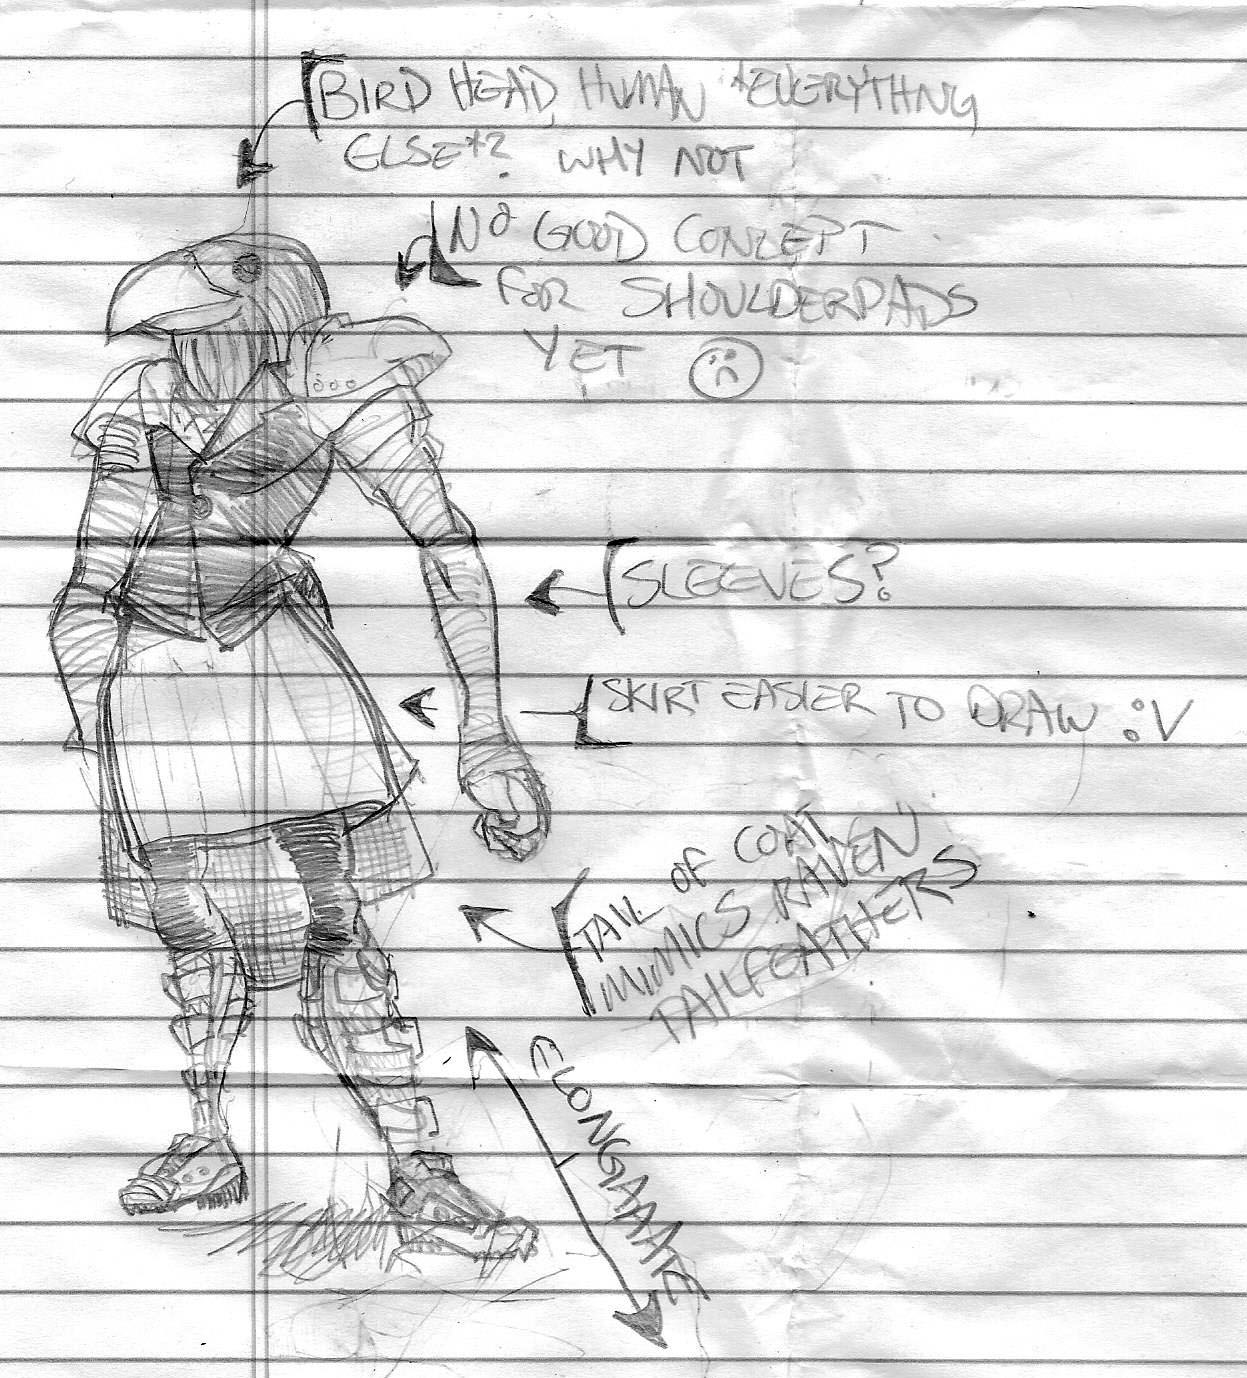 BIRD HEAD, HUMAN *EVERYTHNG
ELSE*? WHY NOT
NO GOOD CONCEPT
FOR SHOULDERPADS
YET
SLEEVES?
SKIRT EASIER TO DRAW :V
TAIL OF COAT
MIMICS RAVEN
TAILFEATHERS
ELONGAAATE